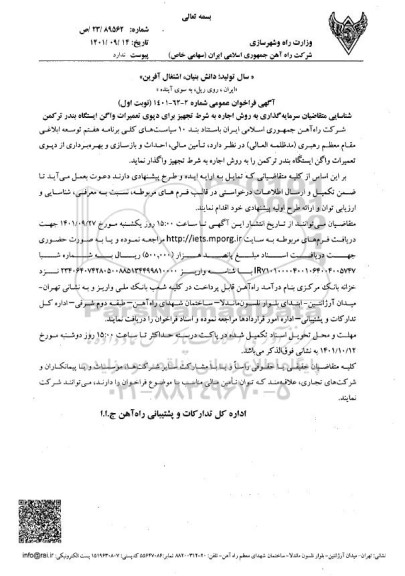 بسمه تعالی
شماره: ۲۳/۸۹۵۶۲/ص
تاریخ: ۱۴۰۱/۰۹/۱۴
پیوست: ندارد
وزارت راه وشهرسازی
شرکت راه آهن جمهوری اسلامی ایران (سهامی خاص)
« سال تولید؛ دانش بنیان، اشتغال آفرین»
«ایران ، روی ریل، به سوی آینده »
آگهی فراخوان عمومی شماره ۳-۹۳-۱۴۰۱ (نوبت اول)
شناسایی متقاضیان سرمایه‌گذاری به روش اجاره به شرط تجهیز برای دپوی تعمیرات واگن ایستگاه بندر ترکمن
شرکت راه‌آهن جمهوری اسلامی ایران باستناد بند ۱۰ سیاست‌های کلی برنامه هفتم توسعه ابلاغی
مقام معظم رهبری (مدظلمه العالی) در نظر دارد، تأمین مالی، احداث و بازسازی و بهره‌برداری از دپوی
تعمیرات واگن ایستگاه بندر ترکمن را به روش اجاره به شرط تجهیز واگذار نماید.
بر این اساس از کلیه متقاضیانی که تمایل به ارایه ایده و طرح پیشنهادی دارند دعوت بعمل می‌آید تا
ضمن تکمیل و ارسال اطلاعات درخواستی در قالب فرم های مربوطه، نسبت به معرفی، شناسایی و
ارزیابی توان و ارائه طرح اولیه پیشنهادی خود اقدام نمایند.
متقاضیان می‌توانند از تاریخ انتشار این آگهی تا ساعت ۱۵:۰۰ روز یکشنبه مورخ ۱۴۰۱/۰۹/۲۷ جهت
دریافت فرم‌های مربوطه به سایت http://iets.mporg.ir مراجعه نموده و یا به صورت حضوری
جهت دریافت اسناد مبلغ پانصد هزار (۵۰۰,۰۰۰) ریال به شماره شبا
با شناسه واریز نزد
خزانه بانک مرکزی بنام درآمد راه‌آهن قابل پرداخت در کلیه شعب بانک ملی واریز و به نشانی تهران-
میدان آرژانتین- ابتدای بلوار نلسون‌ماندلا- ساختمان شهدای راه‌آهن- طبقه دوم شرقی- اداره کل
تدارکات و پشتیبانی- اداره امور قراردادها مراجعه نموده و اسناد فراخوان را دریافت نمایند.
مهلت و محل تحویل اسناد تکمیل شده در پاکت دربسته حداکثر تا ساعت ۱۵:۰۰ روز دوشنبه مورخ
۱۴۰۱/۱۰/۱۲ به نشانی فوق‌الذکر می‌باشد.
کلیه متقاضیان حقیقی یا حقوقی رأساً و یا با مشارکت سایر شرکت‌ها، مؤسسات و یا پیمانکاران و
شرکت‌های تجاری، علاقه‌مند که توان تأمین مالی متناسب با موضوع فراخوان را دارند، می‌توانند شرکت
نمایند.
اداره کل تدارکات و پشتیبانی راه‌آهن ج.ا.ا
۰۲۱-۸۸۳۴۹۶۷۰-۵
نشانی: تهران- میدان آرژانتین- بلوار نلسون ماندلا- ساختمان شهدای معظم راه آهن- تلفن: پست الکترونیکی: info@rai.ir